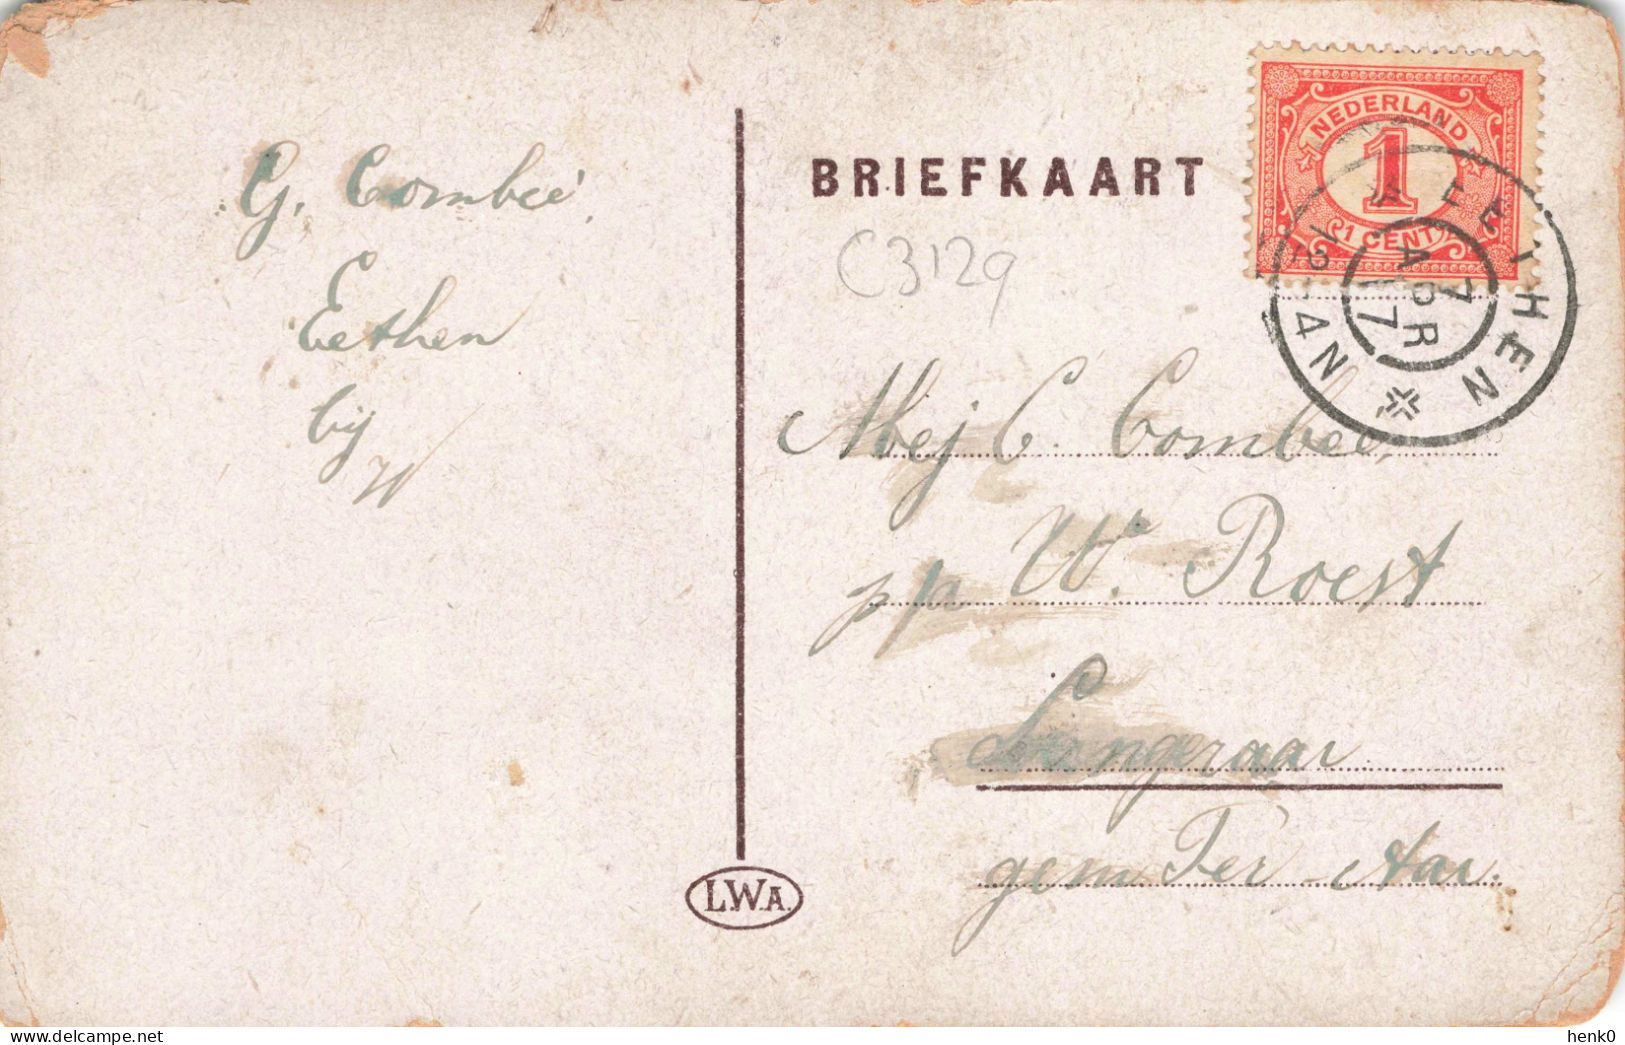 G. Combee
Eethen
bij
W
BRIEFKAART
C3129
NEDERLAND
1
1 CENT
EETHEN
7
APR
17
12-4N
Mej C. Combee,
pp W. Roest
Langeraar
gem Ter-Aar.
L.W.A.
henk0